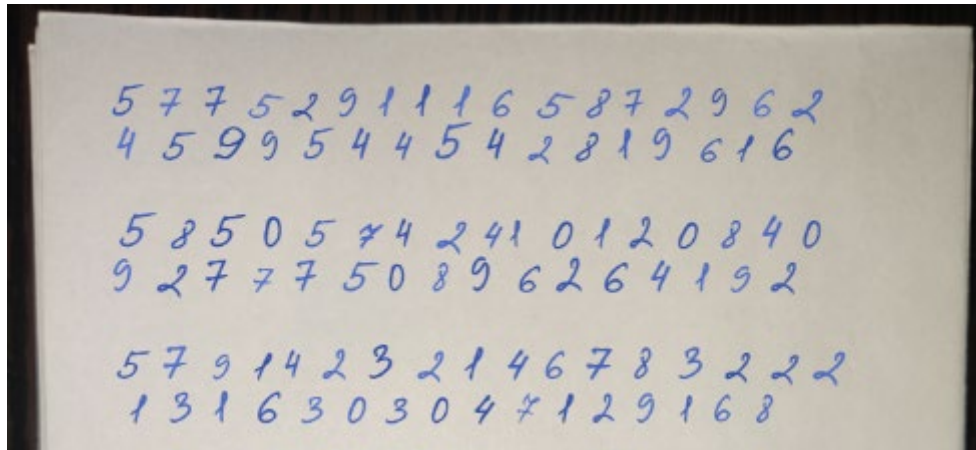 5 7 7 5 2 9 1 1 1 6 5 8 7 2 9 6 2
4 5 9 9 5 4 4 5 4 2 8 1 9 6 1 6
5 8 5 0 5 7 4 2 4 1 0 1 2 0 8 4 0
9 2 7 7 7 5 0 8 9 6 2 6 4 1 9 2
5 7 9 1 4 2 3 2 1 4 6 7 8 3 2 2 2
1 3 1 6 3 0 3 0 4 7 1 2 9 1 6 8